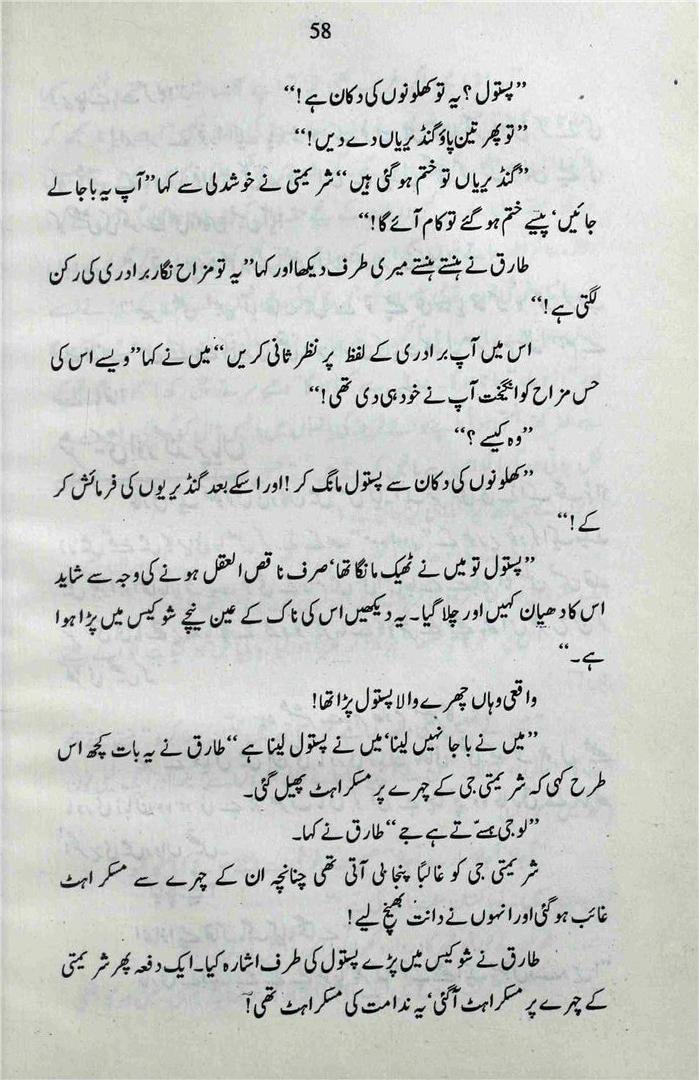 58
”پستول؟ یہ تو کھلونوں کی دکان ہے!“
”تو پھر تین پاؤ گنڈیریاں دے دیں!“
”گنڈیریاں تو ختم ہو گئی ہیں“ شریمتی نے خوشدلی سے کہا ”آپ یہ باجا لے
جائیں، پیسے ختم ہو گئے تو کام آئے گا!“
طارق نے ہنستے ہنستے میری طرف دیکھا اور کہا ”یہ تو مزاح نگار برادری کی رکن
لگتی ہے!“
اس میں آپ برادری کے لفظ پر نظر ثانی کریں“ میں نے کہا ”ویسے اس کی
حس مزاح کو انگیخت آپ نے خود ہی دی تھی!“
”وہ کیسے؟“
”کھلونوں کی دکان سے پستول مانگ کر! اور اسکے بعد گنڈیریوں کی فرمائش کر
کے!“
”پستول تو میں نے ٹھیک مانگا تھا، صرف ناقص العقل ہونے کی وجہ سے شاید
اس کا دھیان کہیں اور چلا گیا۔ یہ دیکھیں اس کی ناک کے عین نیچے شوکیس میں پڑا ہوا
ہے۔“
واقعی وہاں چھرے والا پستول پڑا تھا!
”میں نے باجا نہیں لینا، میں نے پستول لینا ہے“ طارق نے یہ بات کچھ اس
طرح کہی کہ شریمتی جی کے چہرے پر مسکراہٹ پھیل گئی۔
”لو جی ہسّے تے ہے جے“ طارق نے کہا۔
شریمتی جی کو غالباً پنجابی آتی تھی چنانچہ ان کے چہرے سے مسکراہٹ
غائب ہو گئی اور انہوں نے دانت بھینچ لیے!
طارق نے شوکیس میں پڑے پستول کی طرف اشارہ کیا۔ ایک دفعہ پھر شریمتی
کے چہرے پر مسکراہٹ آگئی، یہ ندامت کی مسکراہٹ تھی!